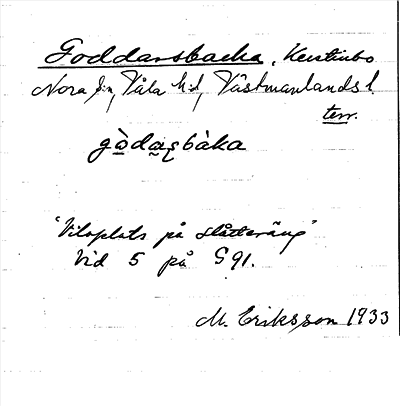 Goddarsbacka, Kerstinbo
Nora sn, Våla hd, Västmanlands l.
terr.
gòdaʂbàka
"Viloplats på slåtteräng"
Vid 5 på G 91.
M. Eriksson 1933